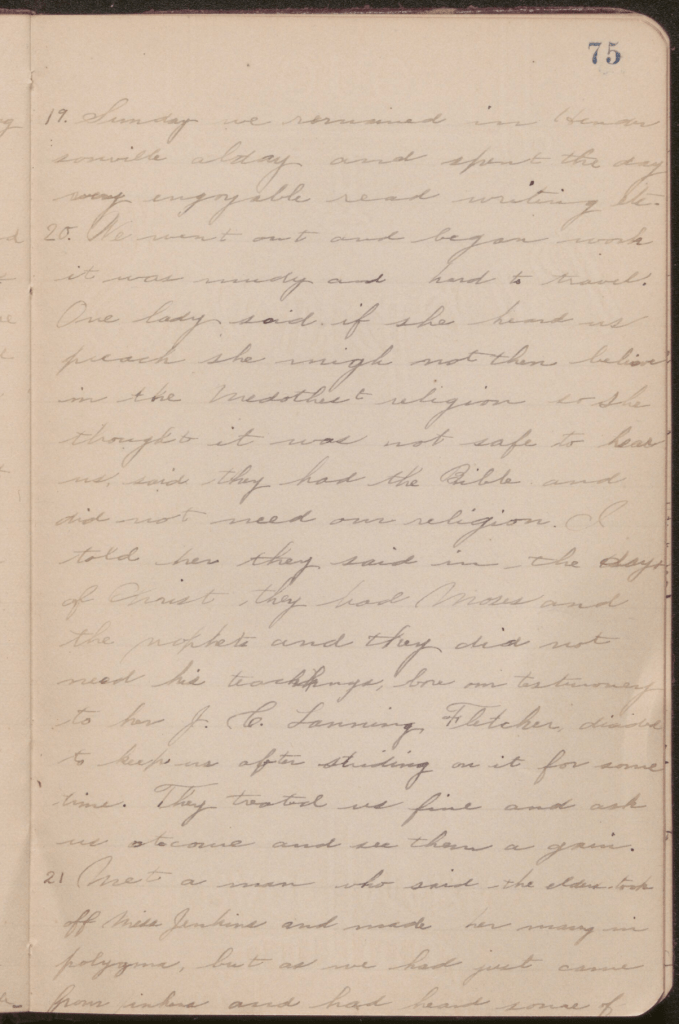 75
19. Sunday we remained in Hender
sonville alday and spent the day
very engoyable read writing etc.
20. We went out and began work
it was mudy and hard to travel.
One lady said if she heard us
preach she migh not then believe
in the Medothest religion so she
thought it was not safe to hear
us, said they had the Bible and
did not need our religion. I
told her they said in the days
of Christ they had Moses and
the prophets and they did not
need his teachings, bore our testimony
to her J. C. Lanning, Fletcher, dicided
to keep us after studing on it for some
time. They treated us fine and ask
us to come and see them a gain.
21 Met a man who said the elders took
off Miss Jenkins and made her marry in
polygma, but as we had just came
from and had heard some of